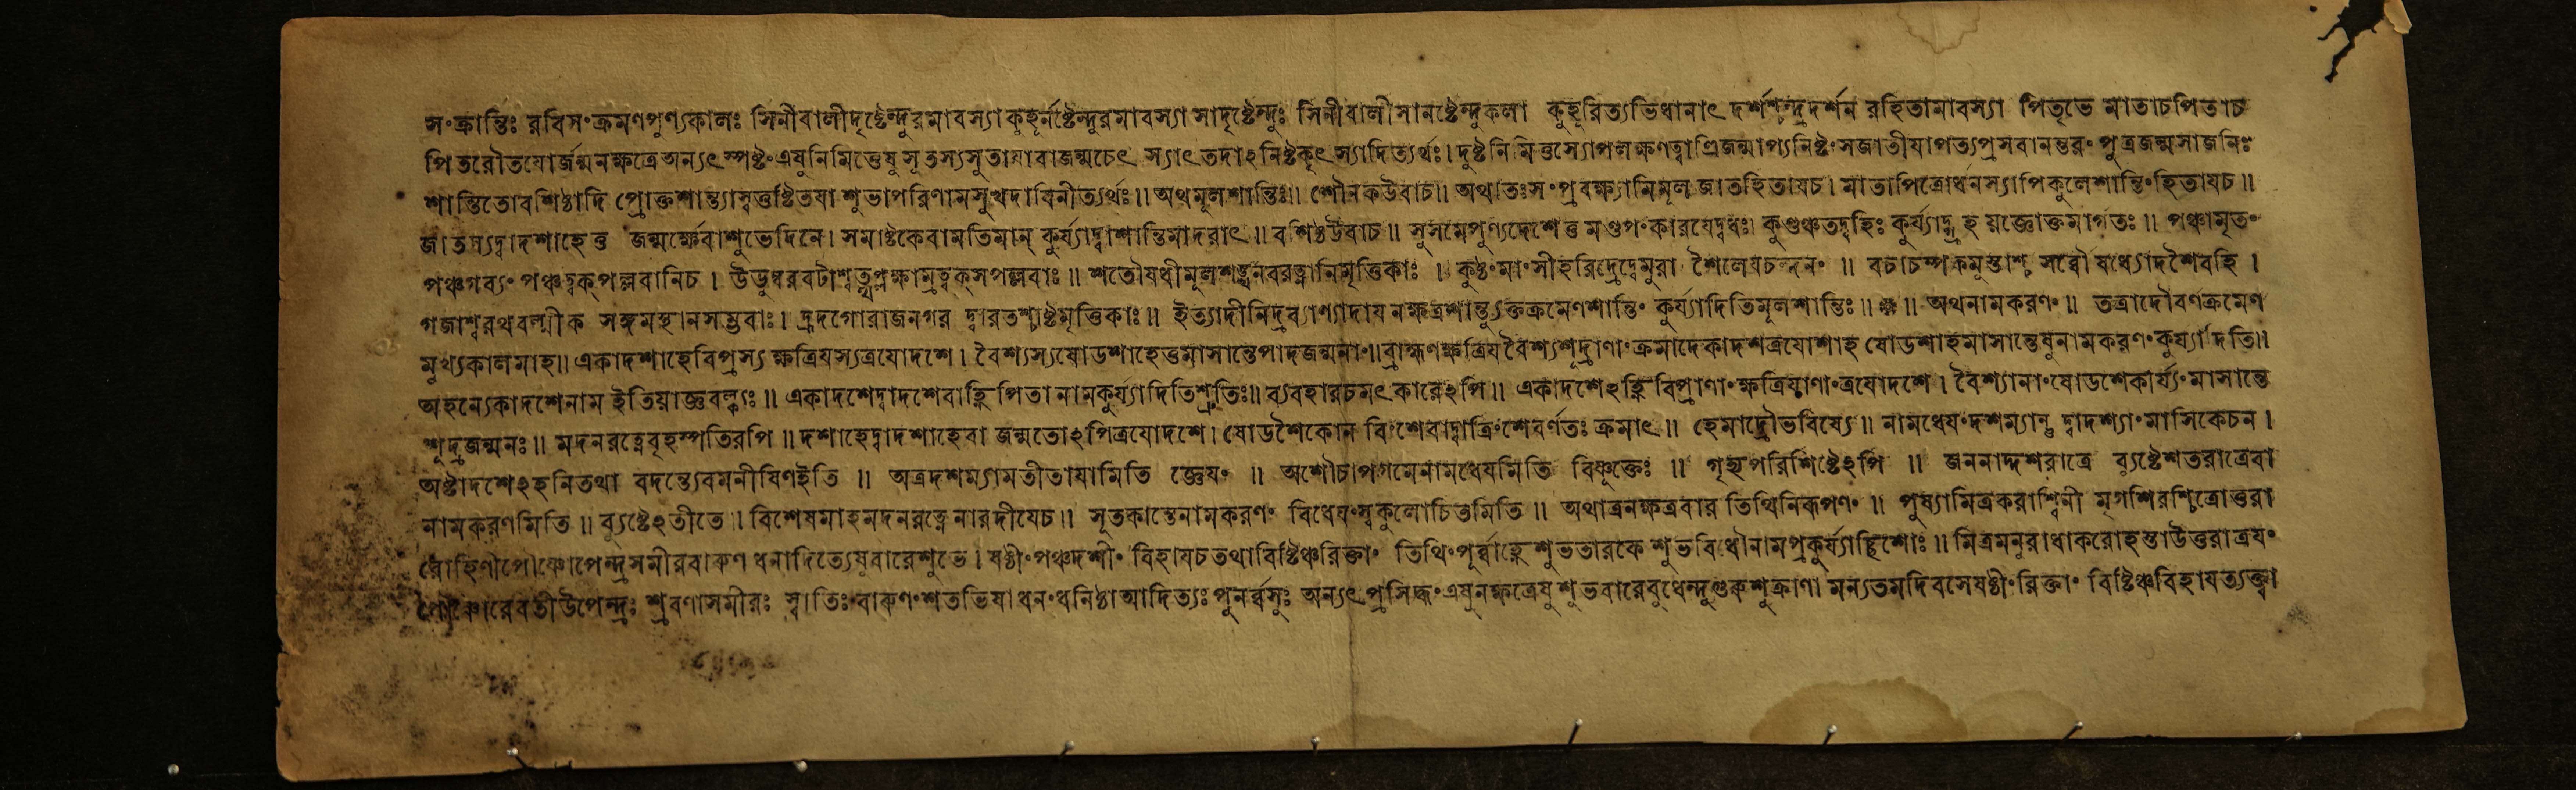 সংক্রান্তিঃ রবিসংক্রমণপুণ্যকালঃ সিনীবালীদৃষ্টেন্দুরমাবস্যাকুহূর্নষ্টেন্দুরমাবস্যা সাদৃষ্টেন্দুঃ সিনীবালীসানষ্টেন্দুকলা কুহূরিত্যভিধানাৎ দর্শশ্চন্দ্রদর্শন রহিতামাবস্যা পিতৃভে মাতাচপিতাচ
পিতরৌতযোর্জন্মনক্ষত্রে অন্যৎস্পষ্টং এষুনিমিত্তেষু সুতস্যসুতাযাবাজন্মচেৎ স্যাৎ তদাঽনিষ্টকৃৎস্যাদিত্যর্থঃ। দুষ্টনিমিত্তস্যোপলক্ষণত্বাত্ত্রিজন্মাপ্যনিষ্টং সজাতীযাপত্যপ্রসবানন্তরং পুত্রজন্মসাজনিঃ
শান্তিতোবশিষ্ঠাদি প্রোক্তশান্ত্যাস্বত্তুষ্টিতযা শুভাপরিণামসুখদাবিনীত্যর্থঃ॥ অথমূলশান্তিঃ॥ শৌনকউবাচ॥ অথাতঃসংপ্রবক্ষ্যামিমূলজাতহিতাযচ। মাতাপিত্রোধনস্যাপিকুলেশান্তিংহিতাযচ॥
জাতস্যদ্বাদশাহেতু জন্মর্ক্ষেবাশুভেদিনে। সমাষ্টকেবামতিমান্ কুর্য্যাদ্বাশান্তিমাদরাৎ॥ বশিষ্ঠউবাচ॥ সুসমেপুণ্যদেশেতু মণ্ডপং কারযেদ্বুধঃ। কুণ্ডঞ্চতদ্বহিঃ কুর্য্যাদ্গ্রহ যজ্ঞোক্তমার্গতঃ॥ পঞ্চামৃতং
পঞ্চগব্যং পঞ্চত্বক্পল্লবানিচ। উডুম্বরবটাশ্বত্থপ্লক্ষাম্রত্বক্সপল্লবাঃ॥ শতৌষধীমূলশঙ্খনবরত্নানিমৃত্তিকাঃ। কুষ্ঠং মাংসীহরিদ্রেদ্বেমুরা শৈলেযচন্দনং॥ বচাচম্পকমুস্তাশ্চ সর্ব্বৌষধ্যোদশৈবহি।
গজাশ্বরথবল্মীক সঙ্গমস্থানসম্ভবাঃ। হ্রদগোরাজনগর দ্বারতশ্চাষ্টমৃত্তিকাঃ॥ ইত্যাদীনিদ্রব্যাণ্যাদায নক্ষত্রশান্ত্যুক্তক্রমেণশান্তিং কুর্য্যাদিতিমূলশান্তিঃ॥ ॥ অথনামকরণং॥ তত্রাদৌবর্ণক্রমেণ
মুখ্যকালমাহ॥ একাদশাহেবিপ্রস্য ক্ষত্রিযস্যত্রযোদশে। বৈশ্যস্যষোডশাহেতুমাসান্তেপাদজন্মনাং॥ ব্রাহ্মণক্ষত্রিযবৈশ্যশূদ্রাণাং ক্রমাদেকাদশত্রযোশাহ ষোডশাহমাসান্তেষুনামকরণং কুর্য্যাদিতি॥
অহন্যেকাদশেনাম ইতিযাজ্ঞবল্ক্যঃ॥ একাদশেদ্বাদশেবাহ্নি পিতা নামকুর্য্যাদিতিশ্রুতিঃ॥ ব্যবহারচমৎকারেঽপি॥ একাদশেঽহ্নি বিপ্রাণাং ক্ষত্রিযাণাং ত্রযোদশে। বৈশ্যানাং ষোডশেকার্য্যং মাসান্তে
শূদ্রজন্মনঃ॥ মদনরত্নেবৃহস্পতিরপি॥ দশাহেদ্বাদশাহেবা জন্মতোঽপিত্রযোদশে। ষোডশৈকোন বিংশেবাদ্বাত্রিংশেবর্ণতঃ ক্রমাৎ॥ হেমাদ্রৌভবিষ্যে॥ নামধেযং দশম্যান্তু দ্বাদশ্যাং মাসিকেচন।
অষ্টাদশেঽহনিতথা বদন্ত্যেবমনীষিণইতি॥ অত্রদশম্যামতীতাযামিতি জ্ঞেযং॥ অশৌচাপগমেনামধেযমিতি বিষ্ণূক্তেঃ॥ গৃহ্যপরিশিষ্টেঽপি॥ জননাদ্দশরাত্রে ব্যুষ্টেশতরাত্রেবা
নামকরণমিতি॥ ব্যুষ্টেঽতীতে। বিশেষমাহমদনরত্নে নারদীযেচ॥ সূতকান্তেনামকরণং বিধেযংস্বকুলোচিতমিতি॥ অথাত্রনক্ষত্রবার তিথিনিরূপণং॥ পুষ্যামিত্রকরাশ্বিনী মৃগশিরশ্চিত্রোত্তরা
রোহিণীপৌষ্ণোপেন্দ্রসমীরবারুণ ধনাদিত্যেষুবারেশুভে। ষষ্ঠীং পঞ্চদশীং বিহাযচতথাবিষ্টিঞ্চরিক্তাং তিথিং পূর্ব্বাহ্ণেশুভতারকে শুভবিধৌনামপ্রকুর্য্যাচ্ছিশোঃ॥ মিত্রমনুরাধাকরোহস্তাউত্তরাত্রযং
পৌষ্ণোরেবতীউপেন্দ্রঃ শ্রবণাসমীরঃ স্বাতিঃ বারুণং শতভিষাধনং ধনিষ্ঠাআদিত্যঃপুনর্ব্বসুঃ অন্যৎপ্রসিদ্ধং এষুনক্ষত্রেষুশুভবারেবুধেন্দুগুরুশুক্রাণা মন্যতমদিবসেষষ্ঠীং রিক্তাং বিষ্টিঞ্চবিহাযত্যক্ত্বা